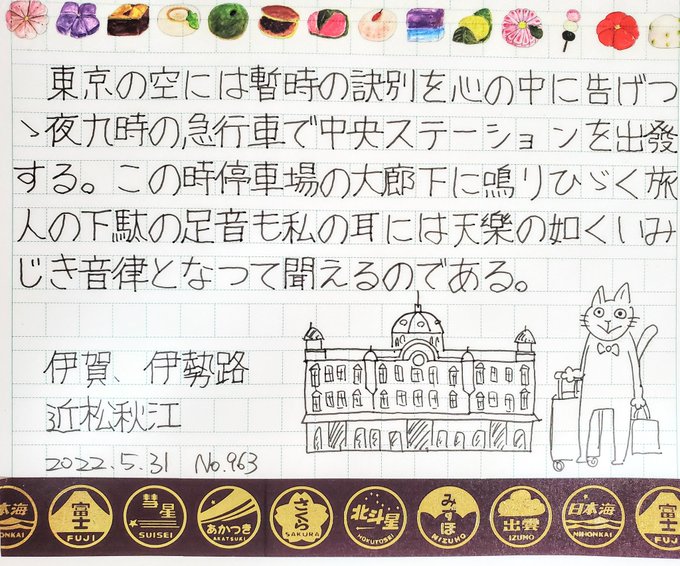 東京の空には暫時の訣別を心の中に告げつ
ゝ夜九時の急行車で中央ステーションを出發
する。この時停車場の大廊下に鳴りひゞく旅
人の下駄の足音も私の耳には天樂の如くいみ
じき音律となつて聞えるのである。
伊賀、伊勢路
近松秋江
2022.5.31 No.963
日本海 NIHONKAI
富士 FUJI
彗星 SUISEI
あかつき AKATSUKI
さくら SAKURA
北斗星 HOKUTOSEI
みずほ MIZUHO
出雲 IZUMO
日本海 NIHONKAI
富士 FUJI